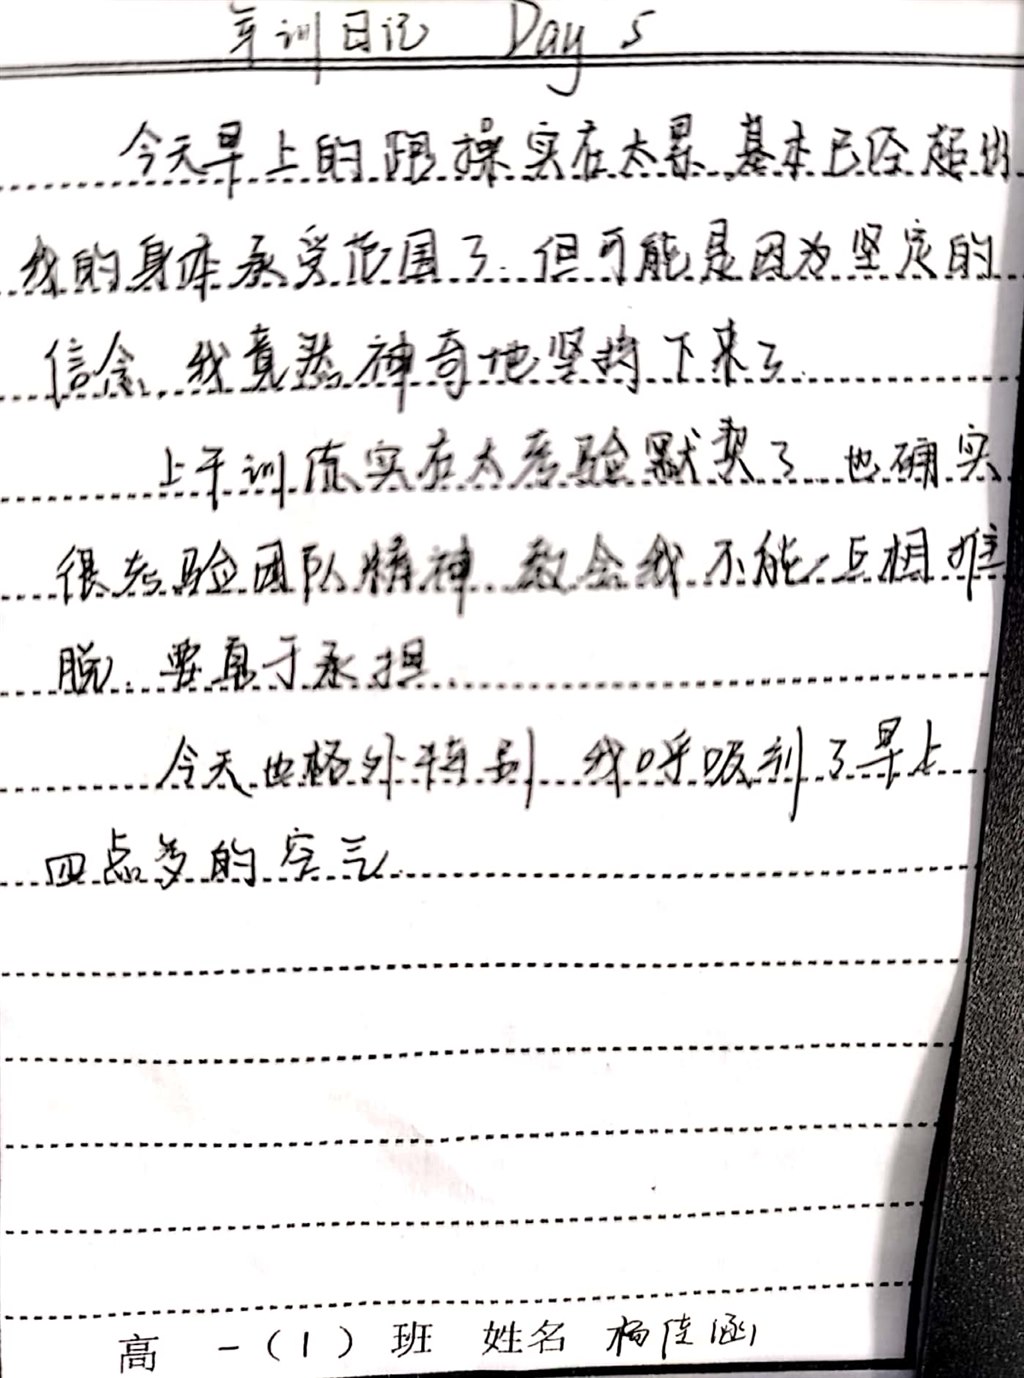 军训日记 Day 5
今天早上的跑操实在太累,基本已经超出
我的身体承受范围了.但可能是因为坚定的
信念,我竟然神奇地坚持下来了.
上午训练实在太考验默契了,也确实
很考验团队精神,教会我不能互相推
脱,要勇于承担.
今天也格外特别,我呼吸到了早上
四点多的空气.
高一(1)班 姓名 杨佳涵